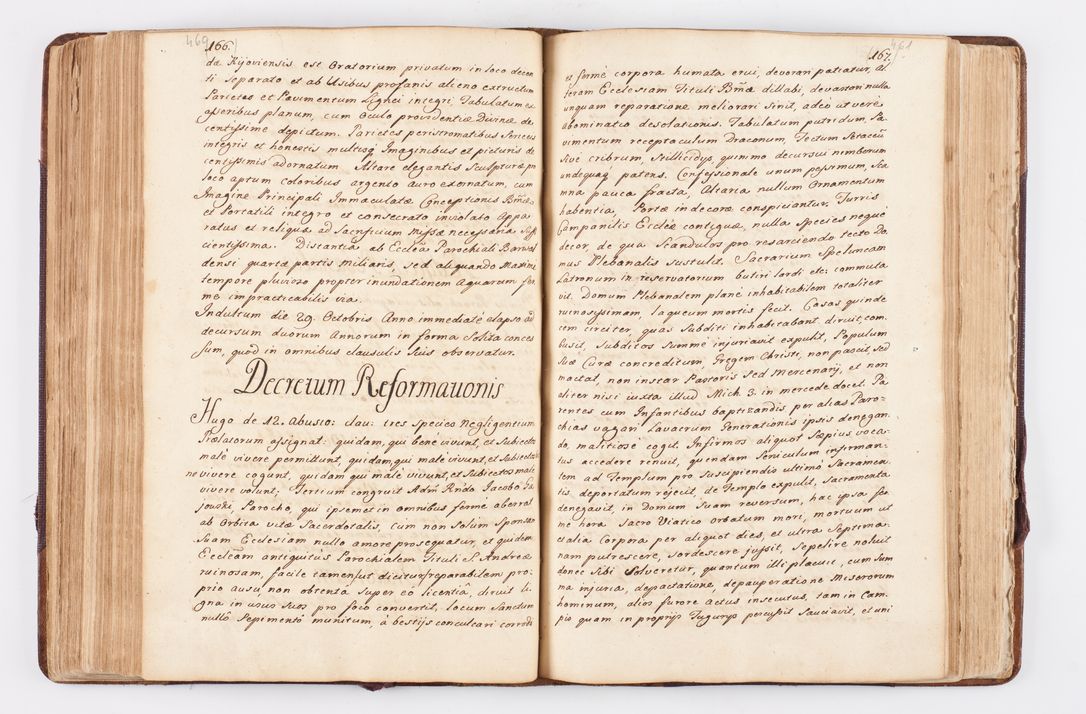 469
166.
da Kijoviensis ese Oratorium privatum in loco decen
ti separato et ab Usibus profanis alieno extructum
Parietes et Pavimentum Lignei integri Tabulatum ex
asseribus planum, cum Oculo providentiæ Divinæ de
centissime depictum. Parietes peristromatibus Sericeis
integris et honestis multisq Imaginibus et picturis de
centissimis adornatum. Altare elegantis Sculpturæ pro
loco aptum coloribus argento auro exornatum, cum
Imagine Principali Immaculatæ Conceptionis Bmæ
et Portatili integro et consecrato inviolato Appa
ratus et reliqua ad Sacrificium missæ necessaria Suff
cientissima. Distantia ab Ecclã Parochiali Barwal
densi quartæ partis miliaris, sed aliquando Maxime
tempore pluvioso propter inundationem Aquarum fer
me impracticabilis via.
Indultum die 29. Octobris Anno immediate elapso ad
decursum duorum Annorum in forma Solita conces
sum, quod in omnibus clausulis suis observatur.
Decretum Reformationis
Hugo de 12. abusio: clau: tres species Negligentium
Prælatorum assignat: quidam, qui bene vivunt, et Subiectos
male vivere permittunt, quidam, qui male vivunt, et Subiectos be
ne vivere cogunt, quidam qui male vivunt, et Subiectos male
vivere volunt; Tertium congruit Adm Rndo Jacobo Ga
jowski, Parocho, qui ipsemet in omnibus ferme aberrat
ab Orbita vitæ Sacerdotalis, cum non Solum Sponsam
Suam Ecclesiam nullo amore prosequatur, et quidem
Eccleam antiquitus Parochialem Tituli S. Andreæ
ruinosam, facile tamen ut dicitur reparabilem pro
prio ausu, non obtenta Super eo licentiâ, diruit li
gna in usus suos pro foco convertit, locum Sanctum
nullo Sepimento munitum, à bestijs conculcari corrodi

461
167.
et ferme corpora humata erui, devorari patiatur, al
teram Ecclesiam Tituli Bmæ dillabi, devastari nulla
unquam reparatione meliorari sinit, adeo ut vere
abominatio desolationis. Tabulatum putridum, Pa
vimentum receptaculum Draconum, Tectum Setaceũ
sive cribrum, Stillicidijs, quinimo decursui nimborum
undequaq patens. Confessionale unum pessimum, Sca
mna pauca fracta, Altaria nullum Ornamentum
habentia, Portæ indecore conspiciantur. Turris
Campanilis Ecclæ contigua, nulla Species neque
decor, de qua Scandulas pro resarciendo tecto Do
mus Plebanalis sustulit. Sacrarium Speluncam
Latronum in reservatorium butiri lardi etc: commuta
vit. Domum Plebanalem plane inhabitabilem totaliter
ruinosissimam, laqueum mortis fecit. Casas quinde
cim circiter, quas Subditi inhabitabant diruit, com
busit, Subditos Summe injuriavit expulit, Populum
Suæ Curæ concreditum, Gregem Christi, non pascit, sed
mactat, non instar Pastoris Sed Mercenarij, et non
aliter nisi iuxta illud Mich. 3. in mercede docet. Pa
rentes cum Infantibus baptizandis per alias Paro-
chias vagari Lavacrum Generationis ipsis denegan
do, malitiose cogit. Infirmos aliquot Sæpius voca-
tus accedere renuit, quendam Seniculum infirman-
tem ad Templum pro suscipiendis ultimo Sacramen
tis deportatum rejecit, de Templo expulit, Sacramenta
denegavit, in Domum Suam reversum, hac ipsa fer
me hora Sacro Viatico orbatum mori, mortuum ut
et alia Corpora per aliquot dies, et ultra Septima-
nam putrescere, sordescere jussit, Sepelire noluit
donec Sibi Solveretur, quantum illi placuit, cum Sum
ma injuria, depactatione, depauperatione Miserorum
hominum, alios furore actus insecutus, tam in Cam-
po quam in proprijs Tugurijs percussit Sauciavit, et uni